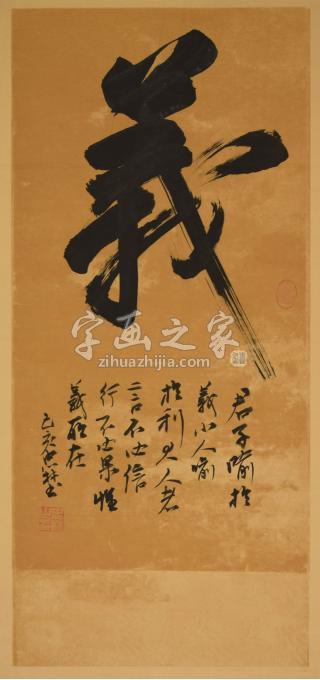 義
字画之家
zihuazhijia.com
君子喻於
義小人喻
於利大人者
言不必信
行不必果惟
義所在
己亥